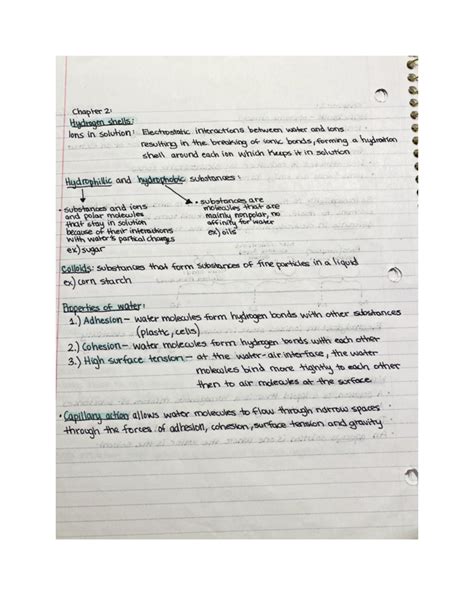 Chapter 2:
Hydrogen shells:
Ions in solution: Electrostatic interactions between water and ions
resulting in the breaking of ionic bonds, forming a hydration
shell around each ion which keeps it in solution
Hydrophillic and hydrophobic substances:
• substances and ions
and polar molecules
that stay in solution
because of their interactions
with water's partical changes
ex) sugar
• substances are
molecules that are
mainly nonpolar, no
affinity for water
ex) oils
Colloids: substances that form substances of fine particles in a liquid
ex) corn starch
Properties of water:
1.) Adhesion - water molecules form hydrogen bonds with other substances
(plastic, cells)
2.) Cohesion - water molecules form hydrogen bonds with each other
3.) High surface tension - at the water-air interface, the water
molecules bind more tightly to each other
then to air molecules at the surface.
• Capillary action allows water molecules to flow through narrow spaces
through the forces of adhesion, cohesion, surface tension and gravity